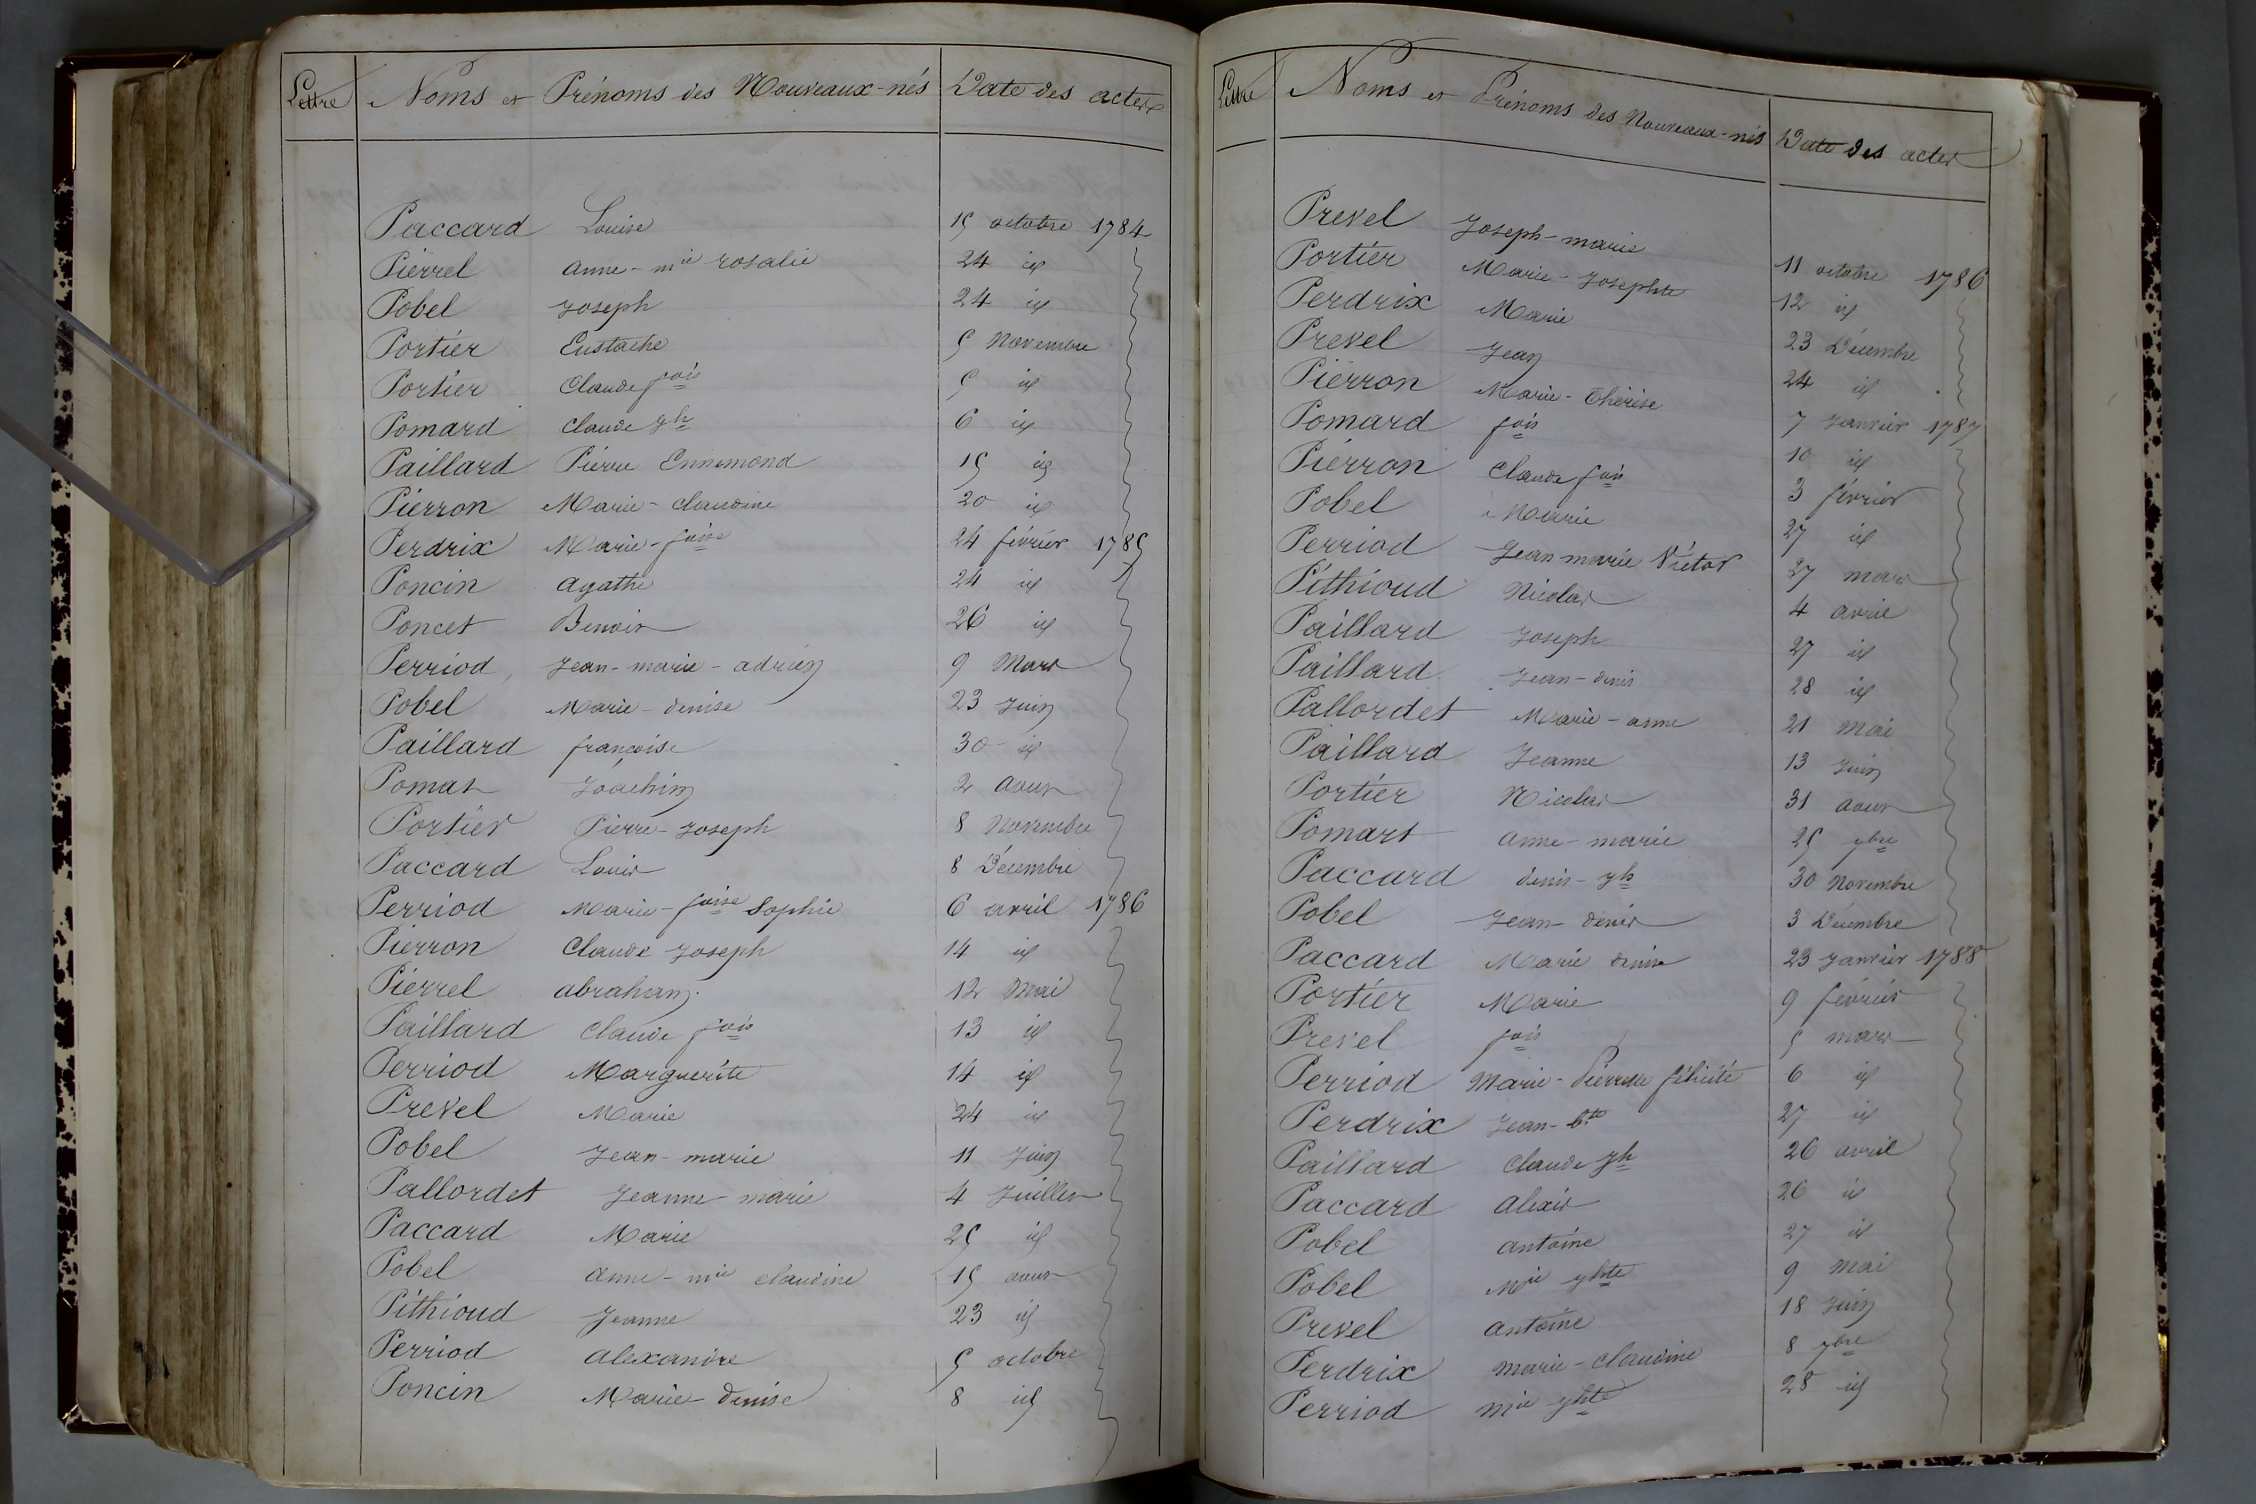 Lettre Noms et Prénoms des Nouveaux-nés Date des actes
Paccard Louise 15 octobre 1784
Pierrel anne-mie rosalie 24 id
Pobel joseph 24 id
Portier Eustache 5 Novembre
Portier Claude fois 5 id
Pomard Claude jh 6 id
Paillard Pierre Ennemond 15 id
Pierron Marie-claudine 20 id
Perdrix Marie-foise 24 février 1785
Poncin agathe 24 id
Poncet Benoit 26 id
Perriod, Jean-marie-adrien 9 Mars
Pobel Marie-denise 23 Juin
Paillard françoise 30 id
Pomat Joachim 2 aout
Portier Pierre-joseph 8 Novembre
Paccard Louis 8 Décembre
Perriod Marie-foise Sophie 6 avril 1786
Pierron Claude joseph 14 id
Pierrel abraham 12 Mai
Paillard Claude fois 13 id
Perriod Marguerite 14 id
Prevel Marie 24 id
Pobel Jean-marie 11 Juin
Pallordet Jeanne-marie 4 Juillet
Paccard Marie 25 id
Pobel anne-mie claudine 15 aout
Pithioud Jeanne 23 id
Perriod alexandre 5 octobre
Poncin Marie-denise 8 id
Lettre Noms et Prénoms des Nouveaux-nés Date des actes
Prevel Joseph-marie 11 octobre 1786
Portier Marie-Josephte 12 id
Perdrix Marie 23 Décembre
Prevel Jean 24 id
Pierron Marie-Thérèse 7 Janvier 1787
Pomard fois 10 id
Pierron Claude fois 3 février
Pobel Marie 27 id
Perriod Jean marie Victor 27 mars
Pithioud Nicolas 4 avril
Paillard Joseph 27 id
Paillard Jean-denis 28 id
Pallordet Marie-anne 21 Mai
Paillard Jeanne 13 Juin
Portier Nicolas 31 aout
Pomart anne-marie 25 7bre
Paccard denis-jh 30 Novembre
Pobel Jean-denis 3 Décembre
Paccard Marie denise 23 Janvier 1788
Portier Marie 9 février
Prevel fois 5 mars
Perriod Marie-Pierrette félicité 6 id
Perdrix Jean-bte 27 id
Paillard Claude jh 26 avril
Paccard alexis 26 id
Pobel antoine 27 id
Pobel Mie jhte 9 Mai
Prevel antoine 18 Juin
Perdrix marie-claudine 8 7bre
Perriod mie jhte 28 id